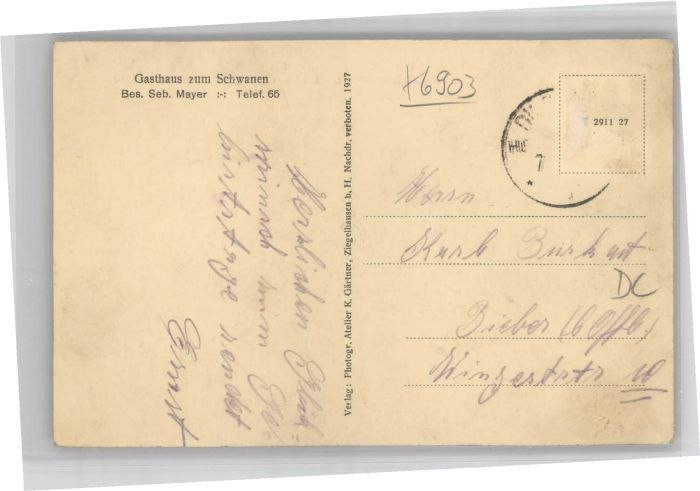 Gasthaus zum Schwanen
Bes. Seb. Mayer :-: Telef. 65
Herzlichen Glück=
wunsch zum Ge=
burtstage sendet
Ernst
Verlag: Photogr. Atelier K. Gärtner, Ziegelhausen b. H. Nachdr. verboten. 1927
76903
2911 27
7
Herrn
Karl Burkart
DC
Bieber (b Offb.)
Wingertstr 10